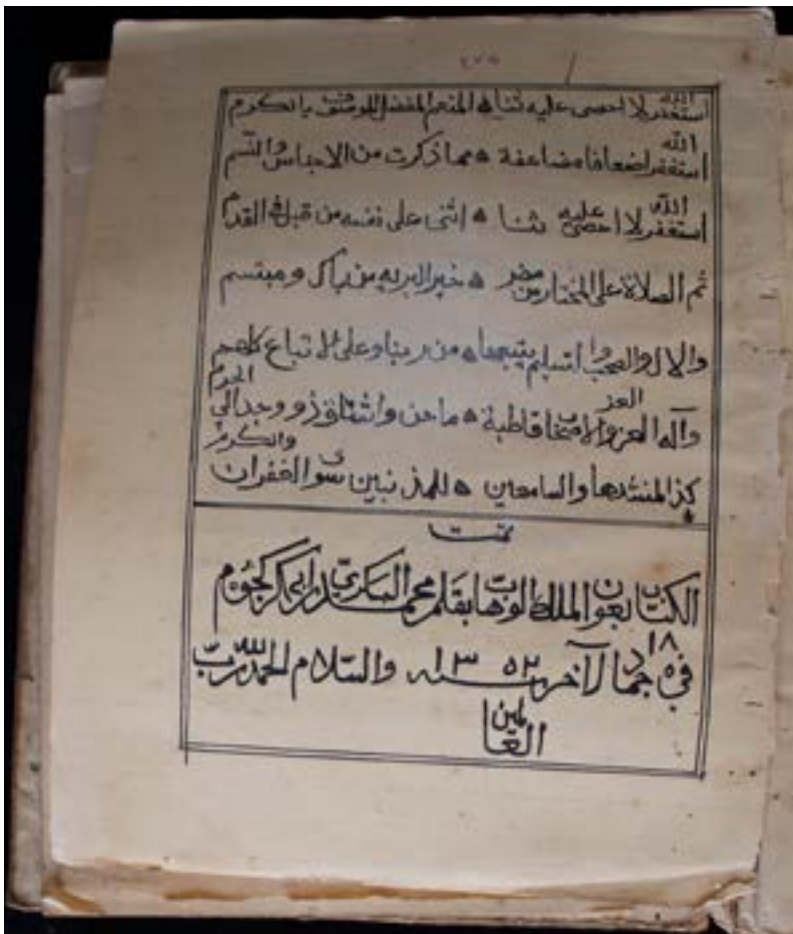 ٢٧٥
استغفر الله لا احصى عليه ثنا ه المنعم المفضل بالكرم
استغفر الله اضعافا مضاعفة ه مما ذكرت من الاجناس والنسم
استغفر الله لا احصى عليه ثنا ه اثنى على نفسه من قبل فى القدم
ثم الصلاة على المختار من مضر ه خير البريه من باك ومبتسم
والال والصحب وا تسليم يتبعها ه من ربنا وعلى الاتباع كلهم
وآله الغر والاصحاب قاطبة ه ما حن واشتاق ذو وجد الى الحرم
كذا لمنشدها والسامعين ه للمذنبين سوى الغفران والكرم
تمت
الكتاب بعون الملك الوهاب بقلم محمد البكري بن ابى بكر
فى ١٨ جماد الآخر سنه ١٣٥٢ والسّلام الحمد لله ربّ
العالمين